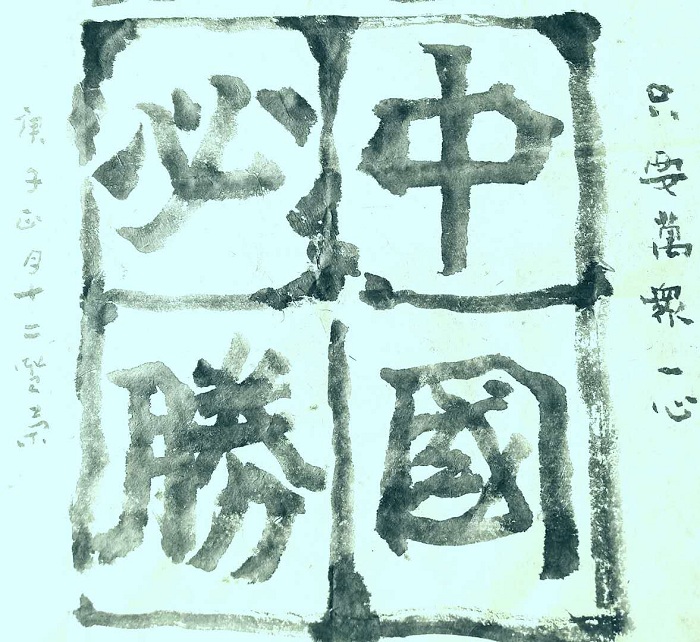 只要萬眾一心
中國
必勝
庚子正月十二